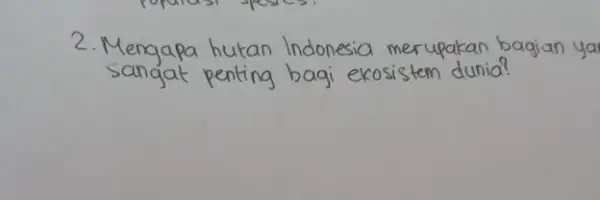 2. Mengapa hutan Indonesia merupakan bagian
sangat penting bagi ekosistem dunia?